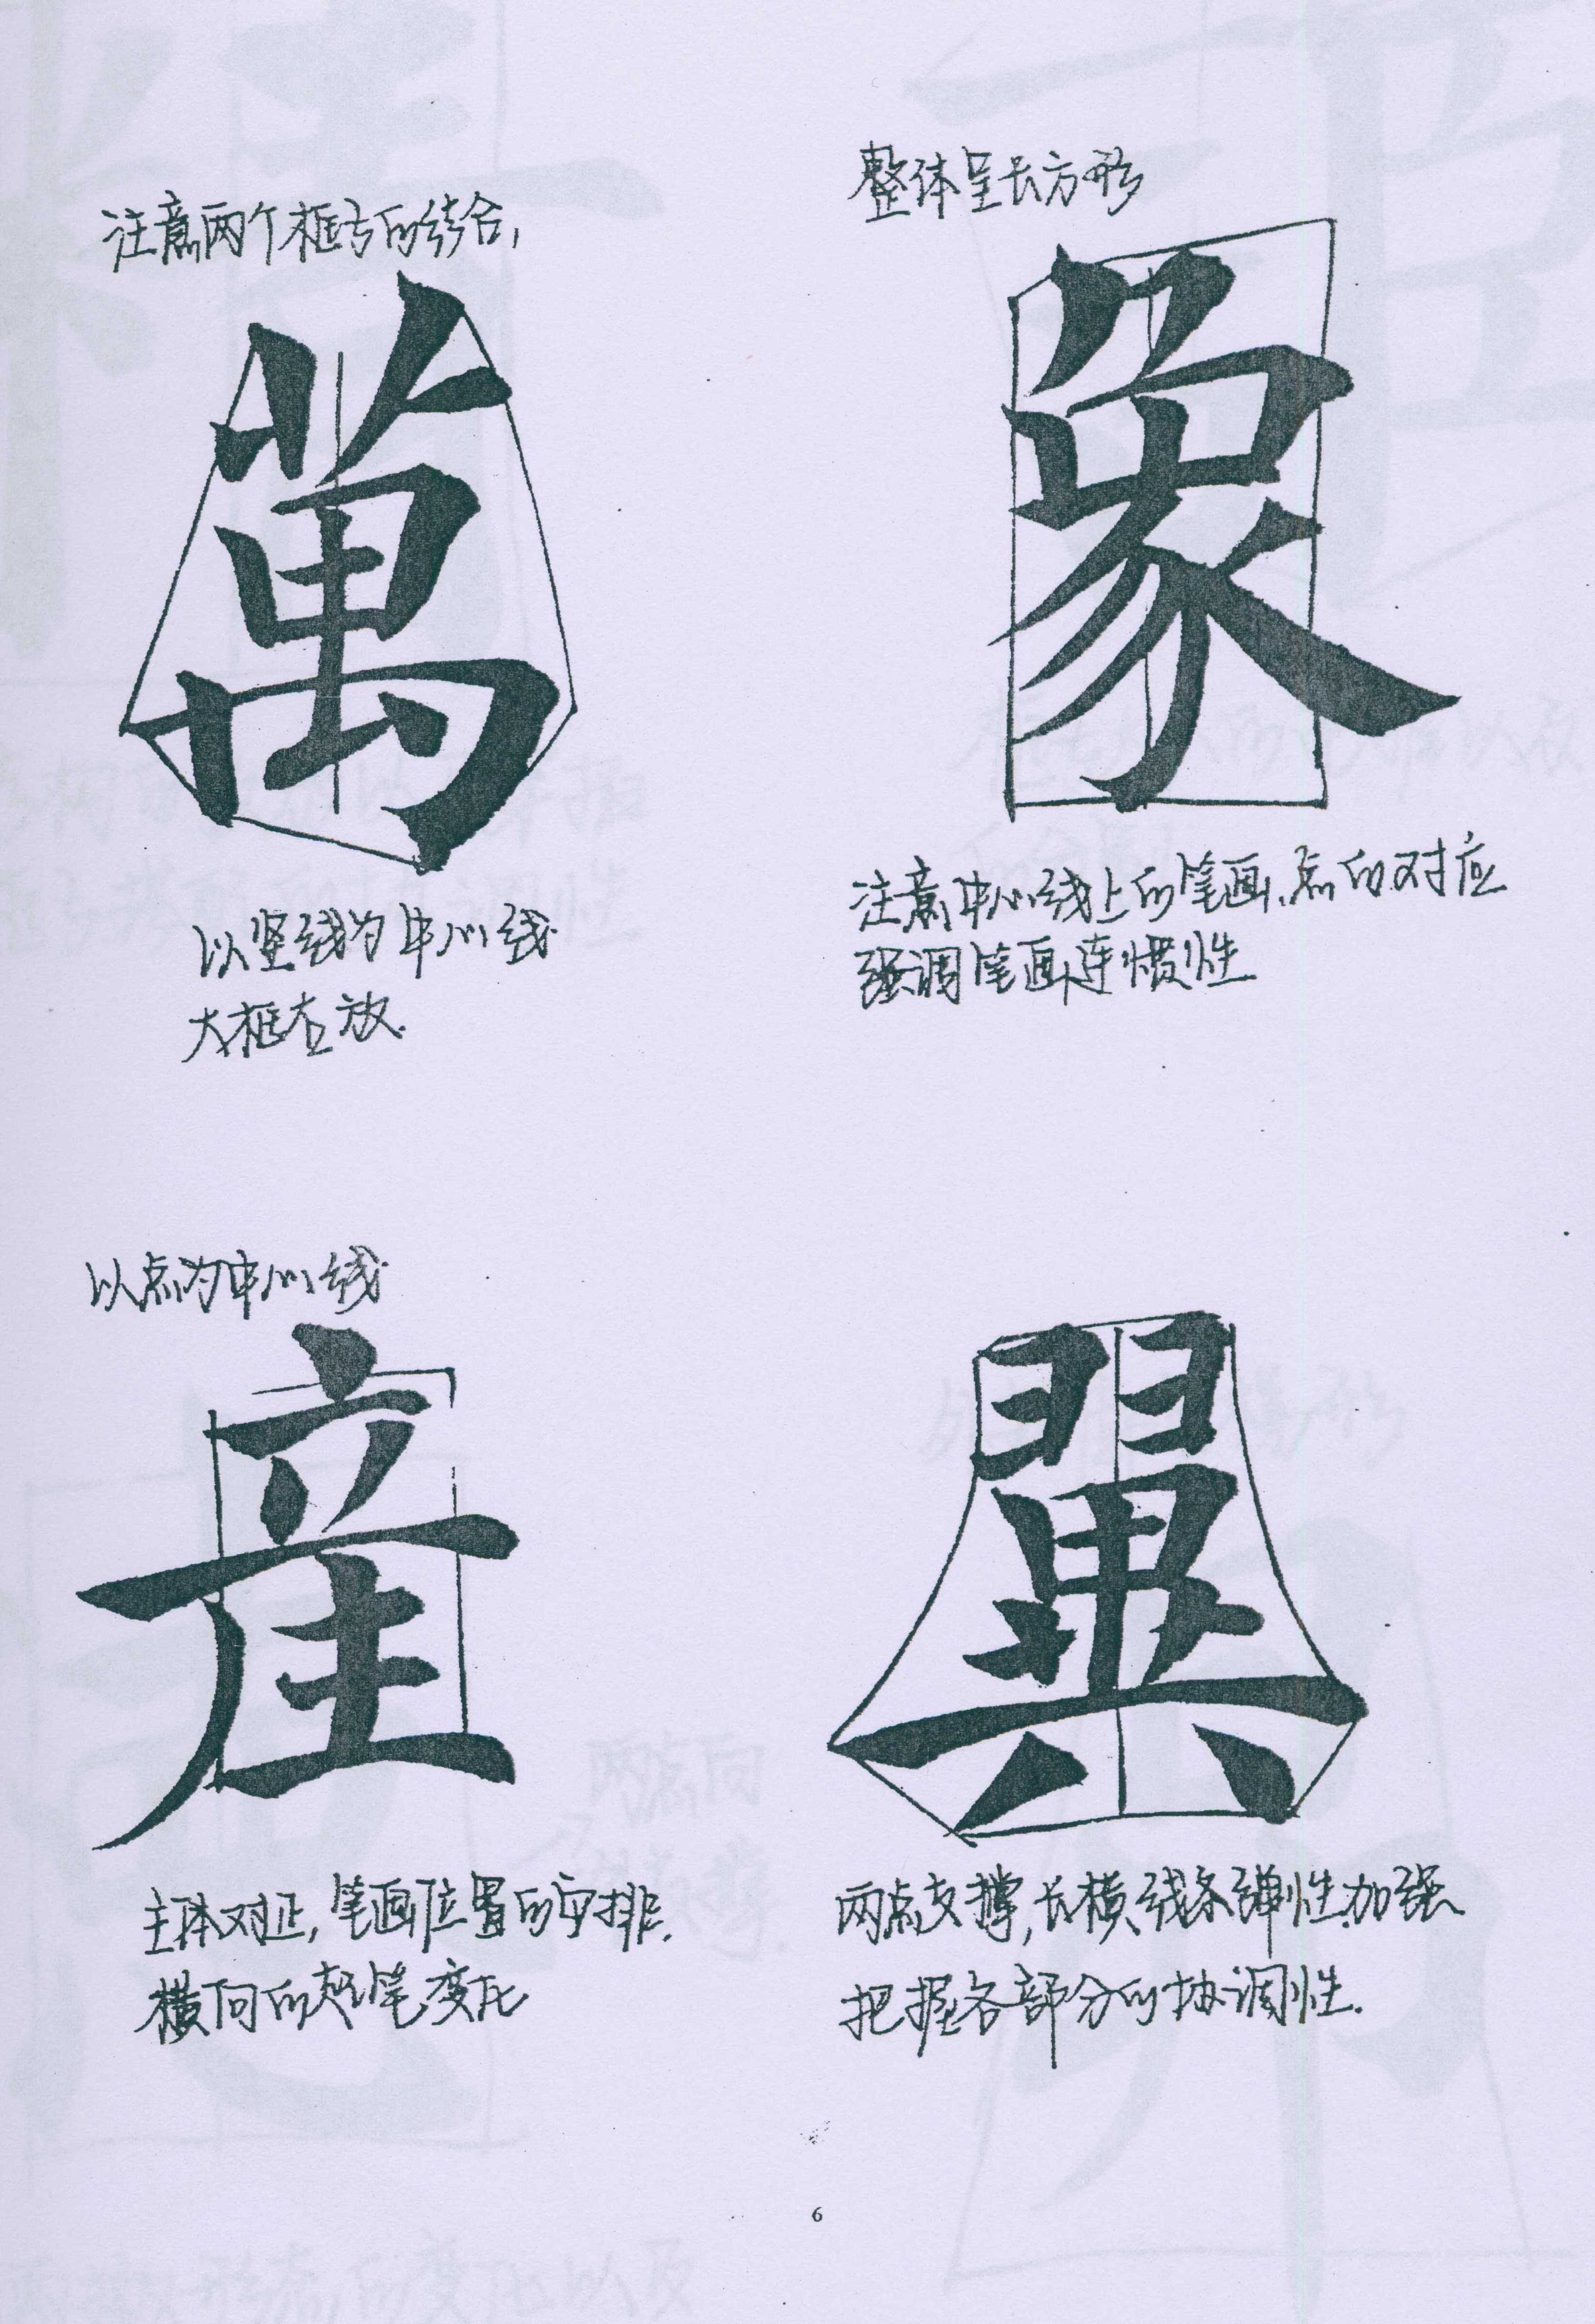 注意两个框与的结合,
萬
以竖线为中心线
大框右放.
整体呈长方形
象
注意中心线上的笔画、点的对应
强调笔画连惯性
以点为中心线
産
主体对正,笔画位置的安排.
横向的起笔变化
翼
两点支撑,长横线条弹性加强
把握各部分的协调性.
6